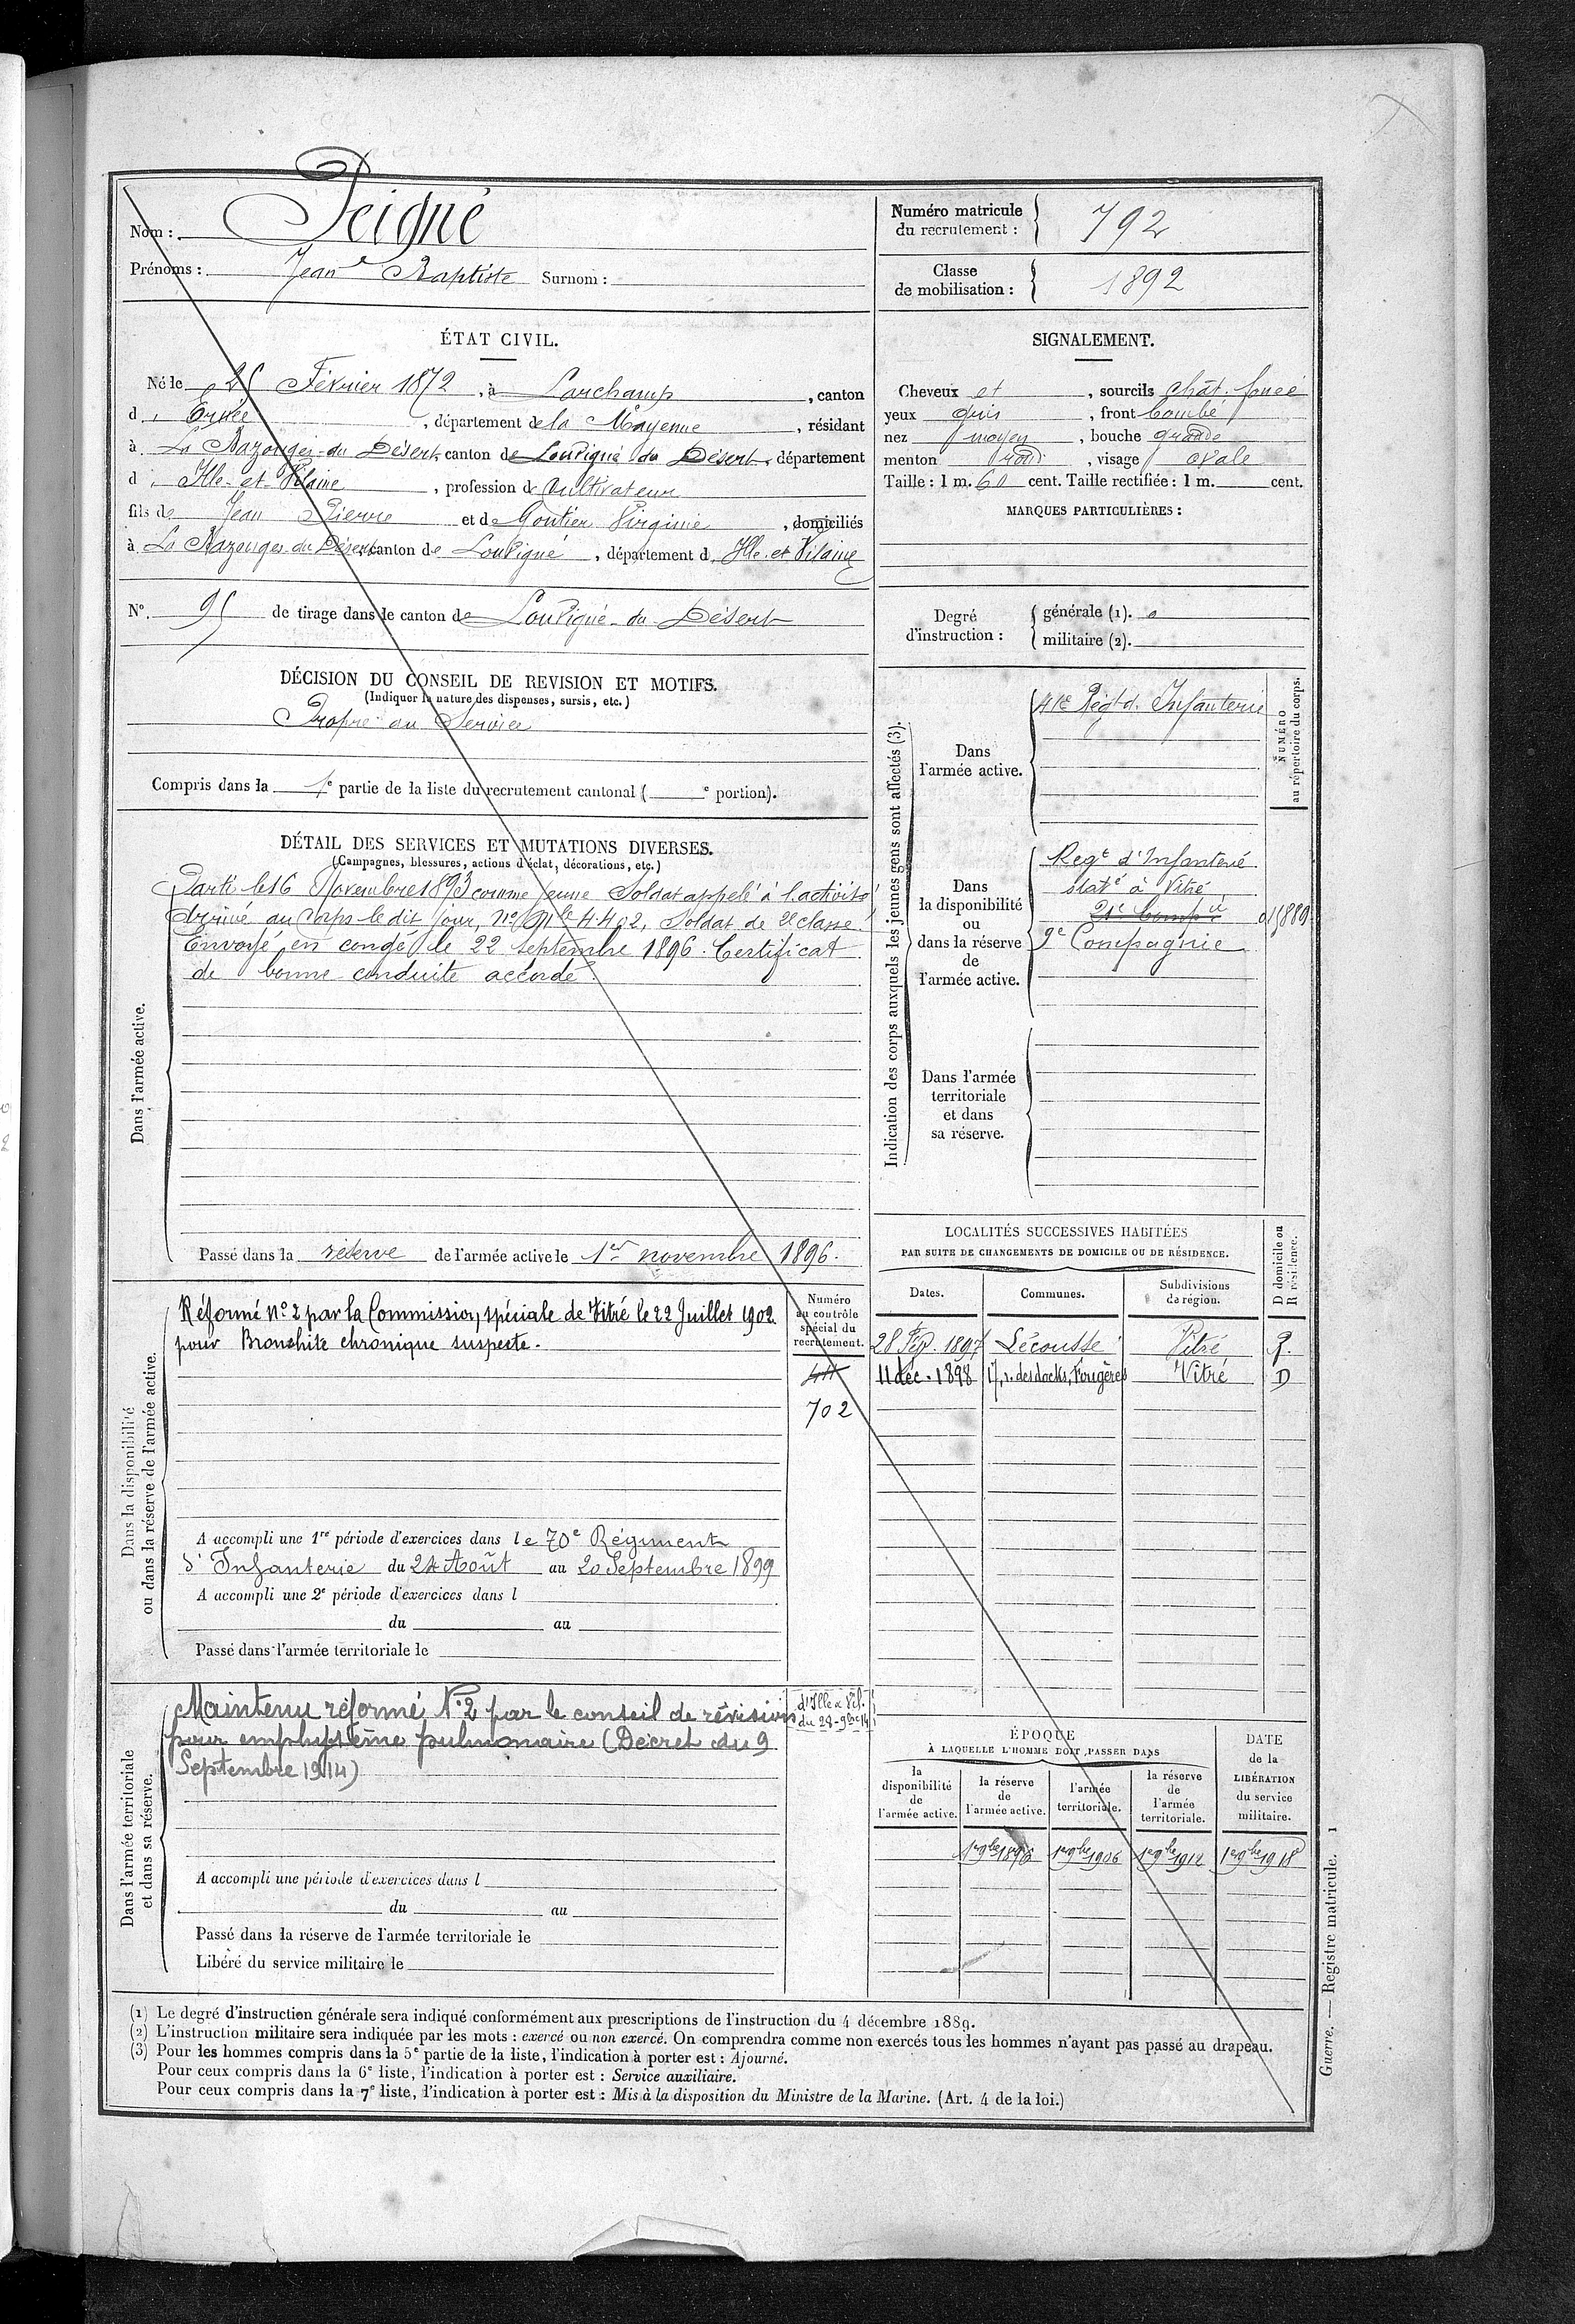 Nom : Peigné
Prénoms : Jean Baptiste Surnom :
Numéro matricule du recrutement : 792
Classe de mobilisation : 1892
ÉTAT CIVIL.
Né le 25 Février 1872, à Larchamp, canton
d' Ernée, département de la Mayenne, résidant
à La Bazouges-du Désert, canton de Louvigné du Désert, département
d' Ille-et-Vilaine, profession de Cultivateur
fils de Jean Pierre et de Gontier Virginie, domiciliés
à La Bazouges du Désert, canton de Louvigné, département d' Ille-et-Vilaine
N° 95 de tirage dans le canton de Louvigné-du-Désert
SIGNALEMENT.
Cheveux et, sourcils chât. foncé
yeux gris, front bombé
nez moyen, bouche grande
menton rond, visage ovale
Taille : 1 m. 60 cent. Taille rectifiée : 1 m. cent.
MARQUES PARTICULIÈRES :
Degré d'instruction : générale (1). 0
militaire (2).
DÉCISION DU CONSEIL DE REVISION ET MOTIFS.
(Indiquer la nature des dispenses, sursis, etc.)
Propre au Service
Compris dans la 1e partie de la liste du recrutement cantonal ( e portion).
DÉTAIL DES SERVICES ET MUTATIONS DIVERSES.
(Campagnes, blessures, actions d'éclat, décorations, etc.)
Dans l'armée active.
Parti le 16 Novembre 1893 comme jeune Soldat appelé à l'activité
Arrivé au Corps le dit jour, No Mle 4402, Soldat de 2e classe.
Envoyé en congé le 22 septembre 1896. Certificat
de bonne conduite accordé.
Passé dans la réserve de l'armée active le 1er novembre 1896.
Indication des corps auxquels les jeunes gens sont affectés (3).
NUMÉRO au répertoire du corps.
Dans l'armée active.
41e Régt d. Infanterie
Dans la disponibilité ou dans la réserve de l'armée active.
Regt d'Infanterie
staté à Vitré
21e Compie
9e Compagnie
Dans l'armée territoriale et dans sa réserve.
LOCALITÉS SUCCESSIVES HABITÉES
PAR SUITE DE CHANGEMENTS DE DOMICILE OU DE RÉSIDENCE.
Dates. Communes. Subdivisions de région. D domicile ou R résidence.
28 Sep. 1897 Lécousse Vitré R.
11 déc. 1898 17, r. des docks, Fougères Vitré D
Dans la disponibilité ou dans la réserve de l'armée active.
Réformé No 2 par la Commission spéciale de Vitré le 22 Juillet 1902
pour Bronchite chronique suspecte.
Numéro au contrôle spécial du recrutement.
702
A accompli une 1re période d'exercices dans le 70e Régiment
d'Infanterie du 24 Août au 20 Septembre 1899
A accompli une 2e période d'exercices dans l
du au
Passé dans l'armée territoriale le
Dans l'armée territoriale et dans sa réserve.
Maintenu réformé No 2 par le conseil de révision d'Ille & Vil. du 28-9bre 14
pour emphysème pulmonaire (Décret du 9
Septembre 1914)
A accompli une période d'exercices dans l
du au
Passé dans la réserve de l'armée territoriale le
Libéré du service militaire le
ÉPOQUE
À LAQUELLE L'HOMME DOIT PASSER DANS
la disponibilité de l'armée active. la réserve de l'armée active. l'armée territoriale. la réserve de l'armée territoriale.
DATE de la LIBÉRATION du service militaire.
1er 9bre 1896 1er 9bre 1906 1er 9bre 1912 1er 9bre 1918
(1) Le degré d'instruction générale sera indiqué conformément aux prescriptions de l'instruction du 4 décembre 1889.
(2) L'instruction militaire sera indiquée par les mots : exercé ou non exercé. On comprendra comme non exercés tous les hommes n'ayant pas passé au drapeau.
(3) Pour les hommes compris dans la 5e partie de la liste, l'indication à porter est : Ajourné.
Pour ceux compris dans la 6e liste, l'indication à porter est : Service auxiliaire.
Pour ceux compris dans la 7e liste, l'indication à porter est : Mis à la disposition du Ministre de la Marine. (Art. 4 de la loi.)
Guerre. — Registre matricule. 1